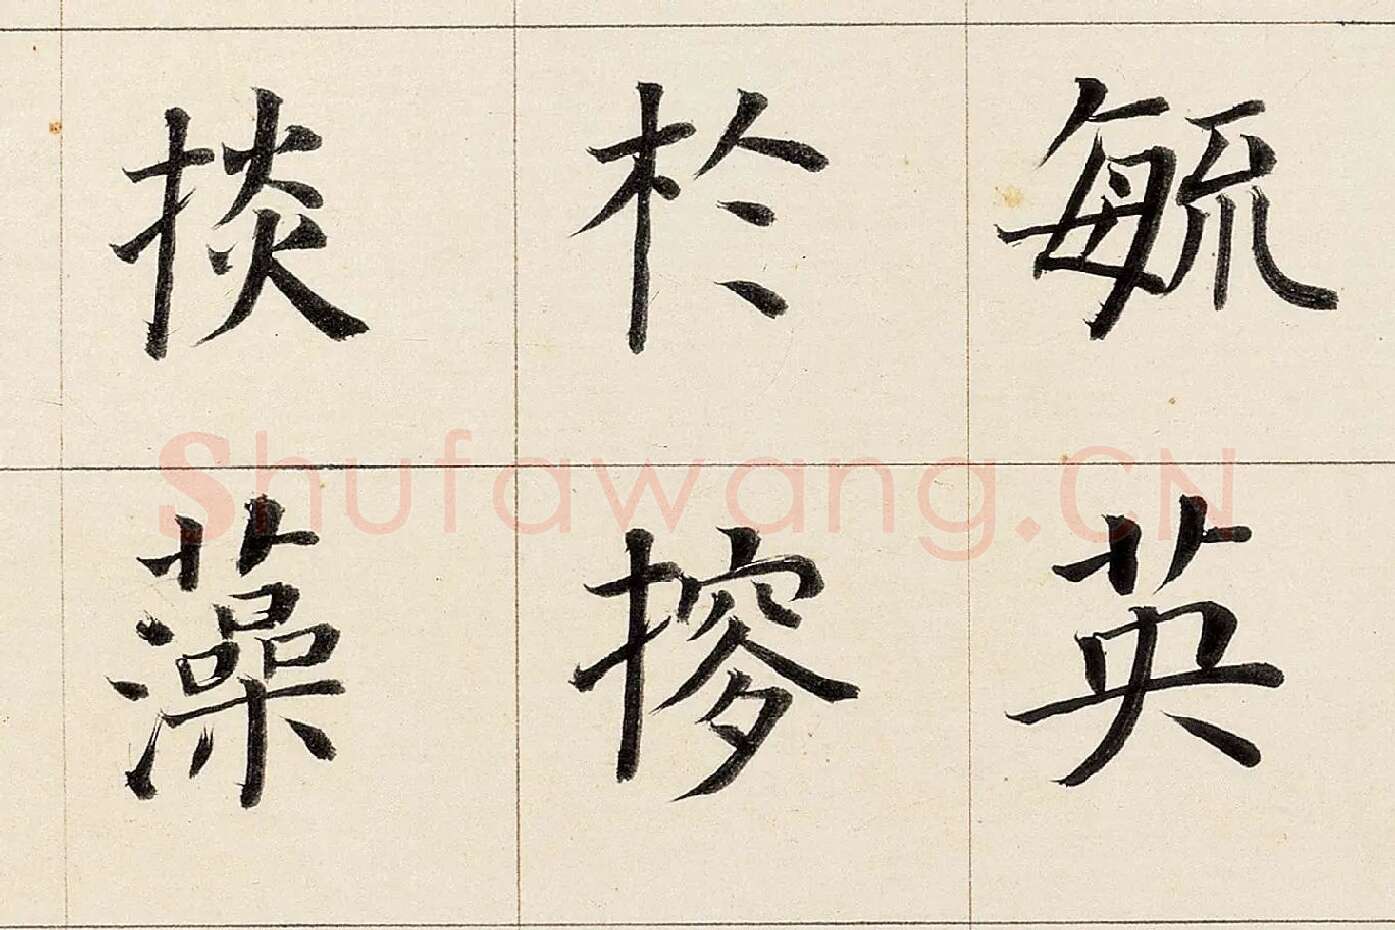 毓英
於
掞藻
Shufawang.CN